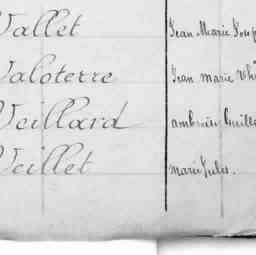 Vallet Jean Marie Joseph
Valoterre Jean marie
Veillard ambroise Guille
Veillet marie Jules.